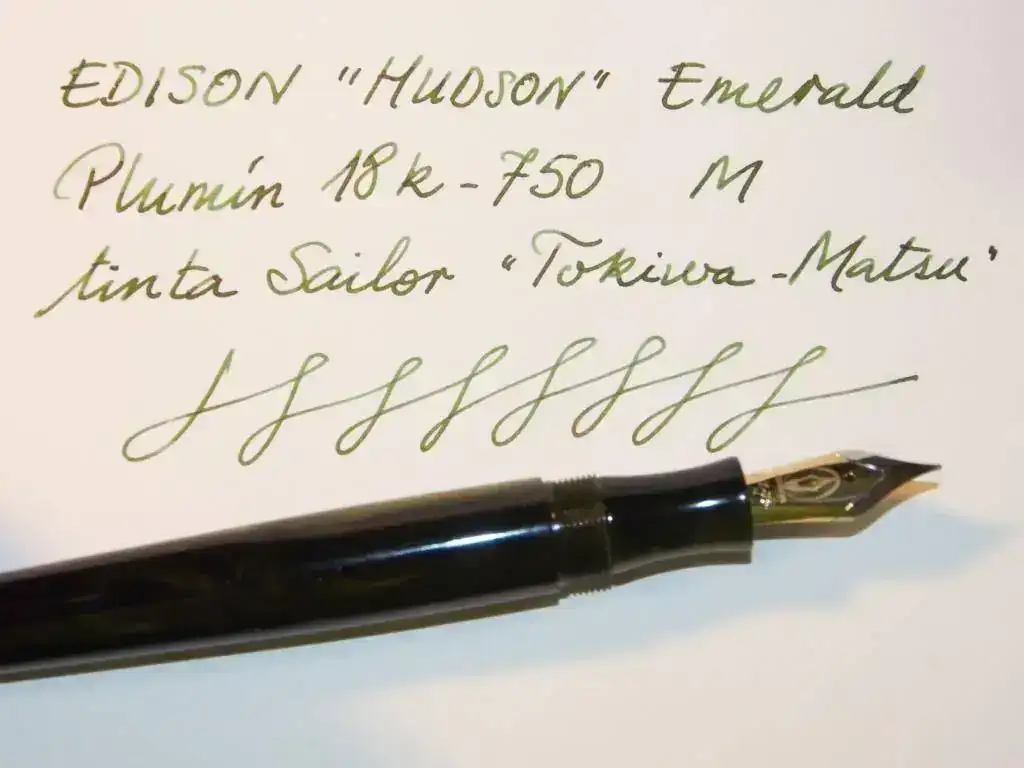 EDISON "HUDSON" Emerald
Plumín 18k-750 M
tinta Sailor "Tokiwa-Matsu"